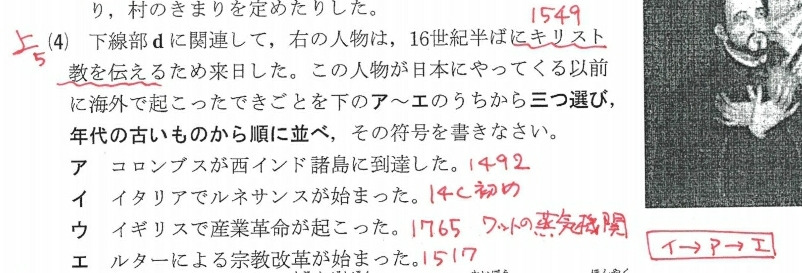 り，村のきまりを定めたりした。
1549
上5 (4) 下線部dに関連して，右の人物は，16世紀半ばにキリスト
教を伝えるため来日した。この人物が日本にやってくる以前
に海外で起こったできごとを下のア～エのうちから三つ選び，
年代の古いものから順に並べ，その符号を書きなさい。
ア コロンブスが西インド諸島に到達した。1492
イ イタリアでルネサンスが始まった。14C初め
ウ イギリスで産業革命が起こった。1765 ワットの蒸気機関
エ ルターによる宗教改革が始まった。1517
イ→ア→エ